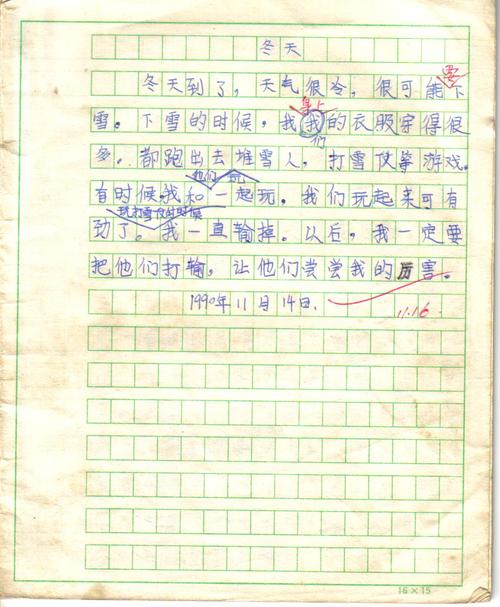 冬天
要
冬天到了，天气很冷，很可能下
身上
雪。下雪的时候，我我的衣服穿得很
们
多。都跑出去堆雪人，打雪仗等游戏。
他们 玩
有时候我和一起玩。我们玩起来可有
玩打雪仗的时候
劲了。我一直输掉。以后，我一定要
把他们打输，让他们尝尝我的厉害。
1990年11月14日.
11.16
16×15